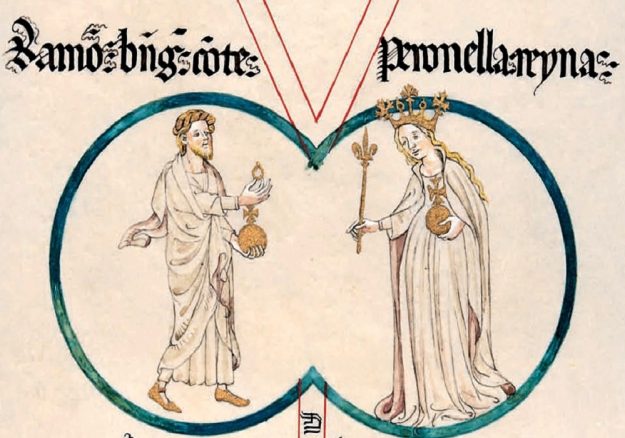 Ramō: bn̄g: cōte:
peronella: reyna: